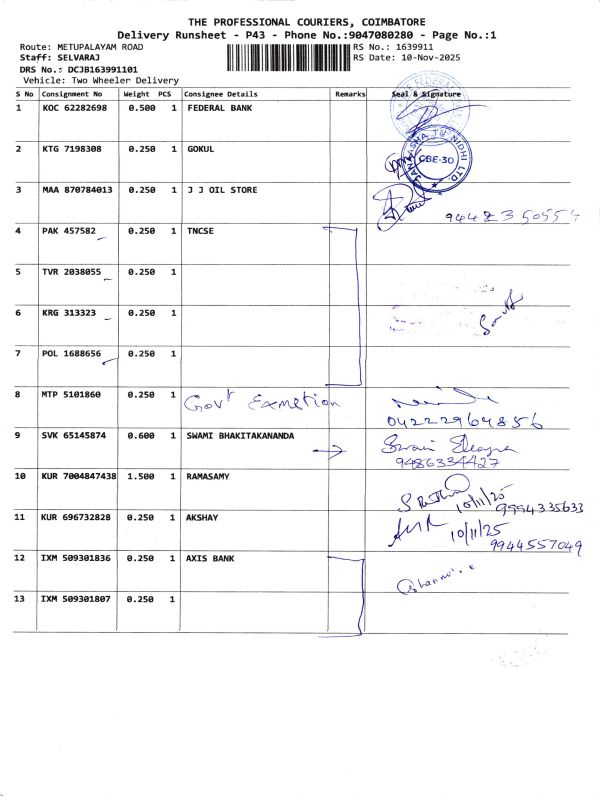 THE PROFESSIONAL COURIERS, COIMBATORE
Delivery Runsheet - P43 - Phone No.:9047080280 - Page No.:1
Route: METUPALAYAM ROAD RS No.: 1639911
Staff: SELVARAJ RS Date: 10-Nov-2025
DRS No.: DCJB163991101
Vehicle: Two Wheeler Delivery
S No Consignment No Weight PCS Consignee Details Remarks Seal & Signature
1 KOC 62282698 0.500 1 FEDERAL BANK
2 KTG 7198308 0.250 1 GOKUL
CBE-30
NIDHI LTD.
3 MAA 870784013 0.250 1 J J OIL STORE
9442350554
4 PAK 457582 0.250 1 TNCSE
5 TVR 2038055 0.250 1
6 KRG 313323 0.250 1
7 POL 1688656 0.250 1
8 MTP 5101860 0.250 1 Govt Exmetion
04222964856
9 SVK 65145874 0.600 1 SWAMI BHAKITAKANANDA
9486334427
10 KUR 7004847438 1.500 1 RAMASAMY
10/11/25 9994335633
11 KUR 696732828 0.250 1 AKSHAY
10/11/25
9944557049
12 IXM 509301836 0.250 1 AXIS BANK
13 IXM 509301807 0.250 1